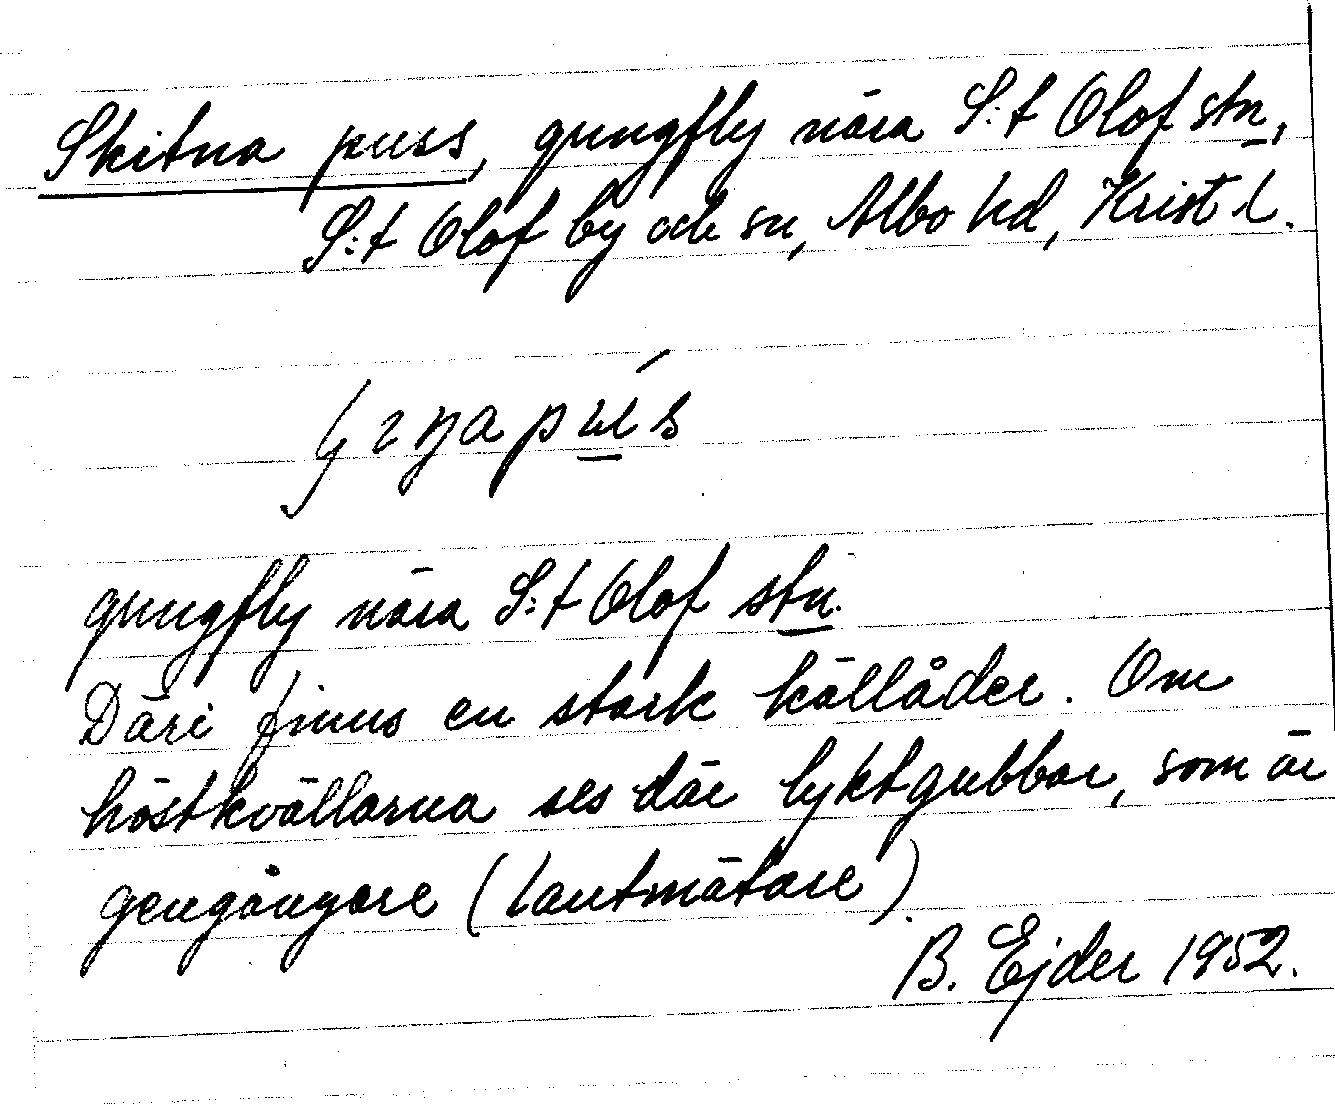 Skitna puss, gungfly nära S:t Olof stn,
S:t Olof by och sn, Albo hd, Krist l.
gungfly nära S:t Olof stn.
Däri finns en stark källåder. Om
höstkvällarna ses där lyktgubbar, som är
gengångare (Lantmätare).
B. Ejder 1952.